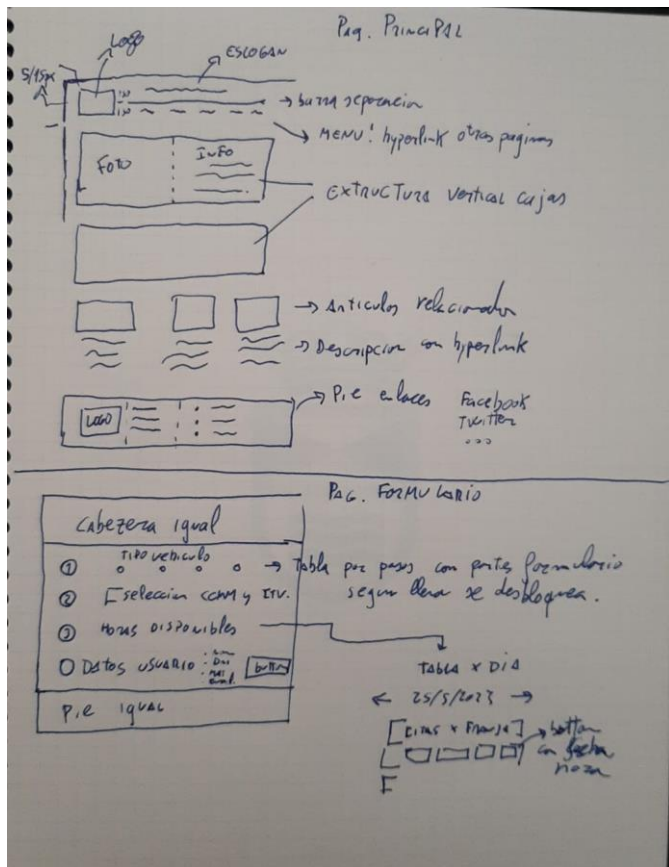 Pag. PRINCIPAL
Logo
ESLOGAN
5/15px
barra separacion
MENU: hyperlink otras paginas
FOTO
INFO
EXTRUCTURA vertical cajas
Articulos relacionados
Descripcion con hyperlink
LOGO
Pie enlaces
Facebook
Twitter
...
PAG. FORMULARIO
Cabezera igual
① TIPO vehiculo
Tabla por pasos con partes formulario
segun llena se desbloquea.
② seleccion CCAA y ITV.
③ HORAS DISPONIBLES
DATOS USUARIO
button
Pie IGUAL
TABLA x DIA
← 25/5/2023 →
[citas x Franja]
button
con fecha